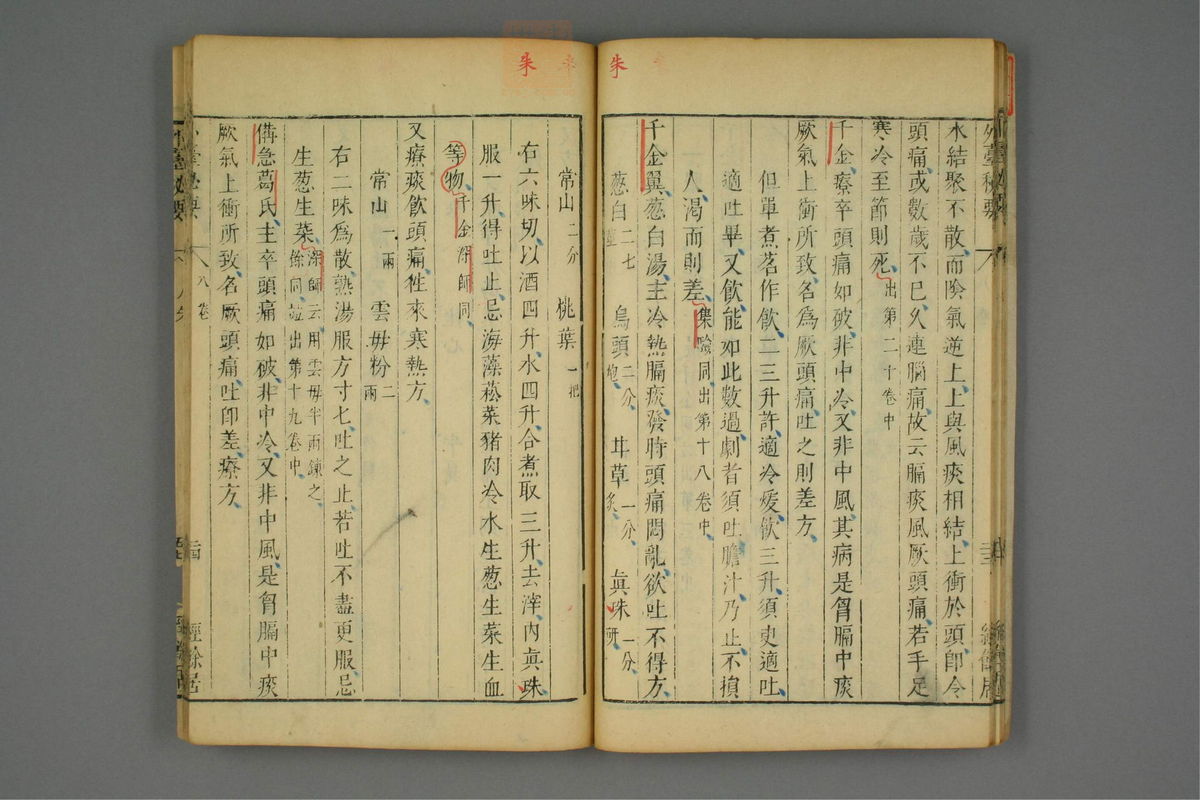 朱
外臺秘要
水結聚不散而陰氣逆上上與風痰相結上衝於頭即令
頭痛或數歲不已久連腦痛故云膈痰風厥頭痛若手足
寒冷至節則死出第二十卷中
千金療卒頭痛如破非中冷又非中風其病是胷膈中痰
厥氣上衝所致名為厥頭痛吐之則差方
但單煮茗作飲二三升許適冷煖飲二升須臾適吐
適吐畢又飲能如此數過劇者須吐膽汁乃止不損
人渴而則差集驗同出第十八卷中
千金翼葱白湯主冷熱膈痰發時頭痛悶亂欲吐不得方
葱白二七莖 烏頭二分炮 甘草一分炙 眞珠一分研
常山二分 桃葉一把
右六味切以酒四升水四升合煮取三升去滓內眞珠
服一升得吐止忌海藻菘菜豬肉冷水生葱生菜生血
等物千金深師同
又療痰飲頭痛徃來寒熱方
常山一兩 雲毋粉二兩
右二味為散熟湯服方寸匕吐之止若吐不盡更服忌
生葱生菜深師云用雲毋半兩鍊之
餘同竝出第十九卷中
備急葛氏主卒頭痛如破非中冷又非中風是胷膈中痰
厥氣上衝所致名厥頭痛吐即差療方
八卷
經餘居
朱